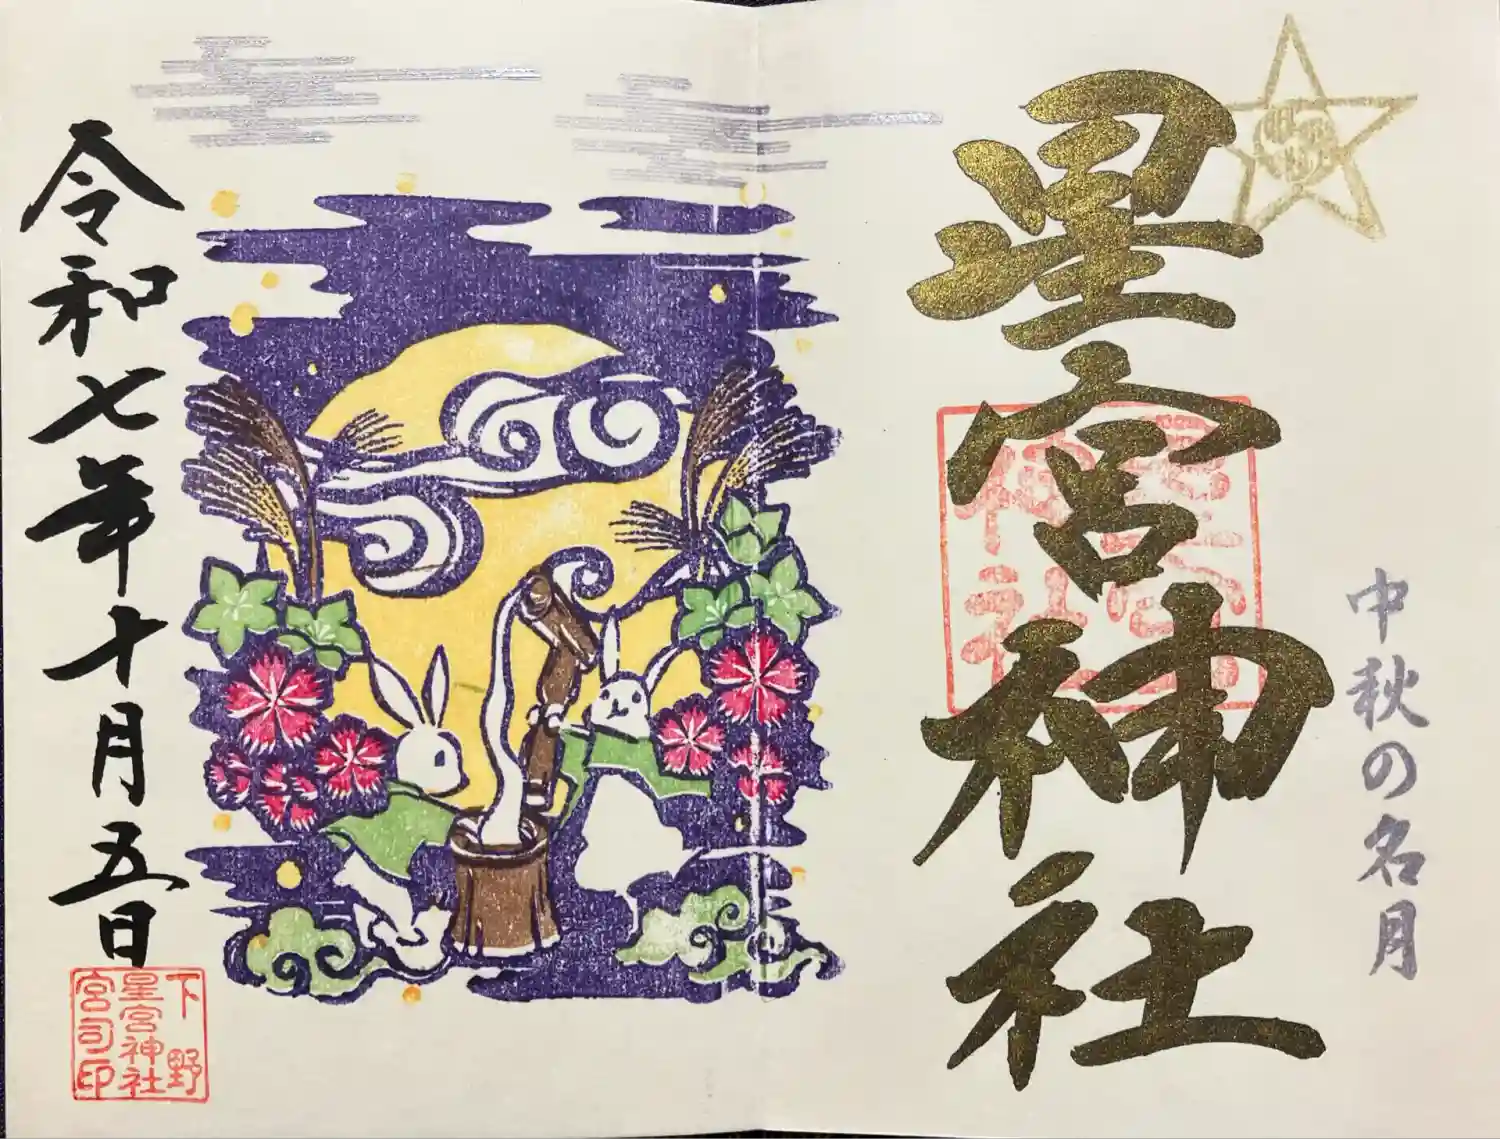 中秋の名月
星宮神社
令和七年十月五日
下野
星宮神社
宮司印